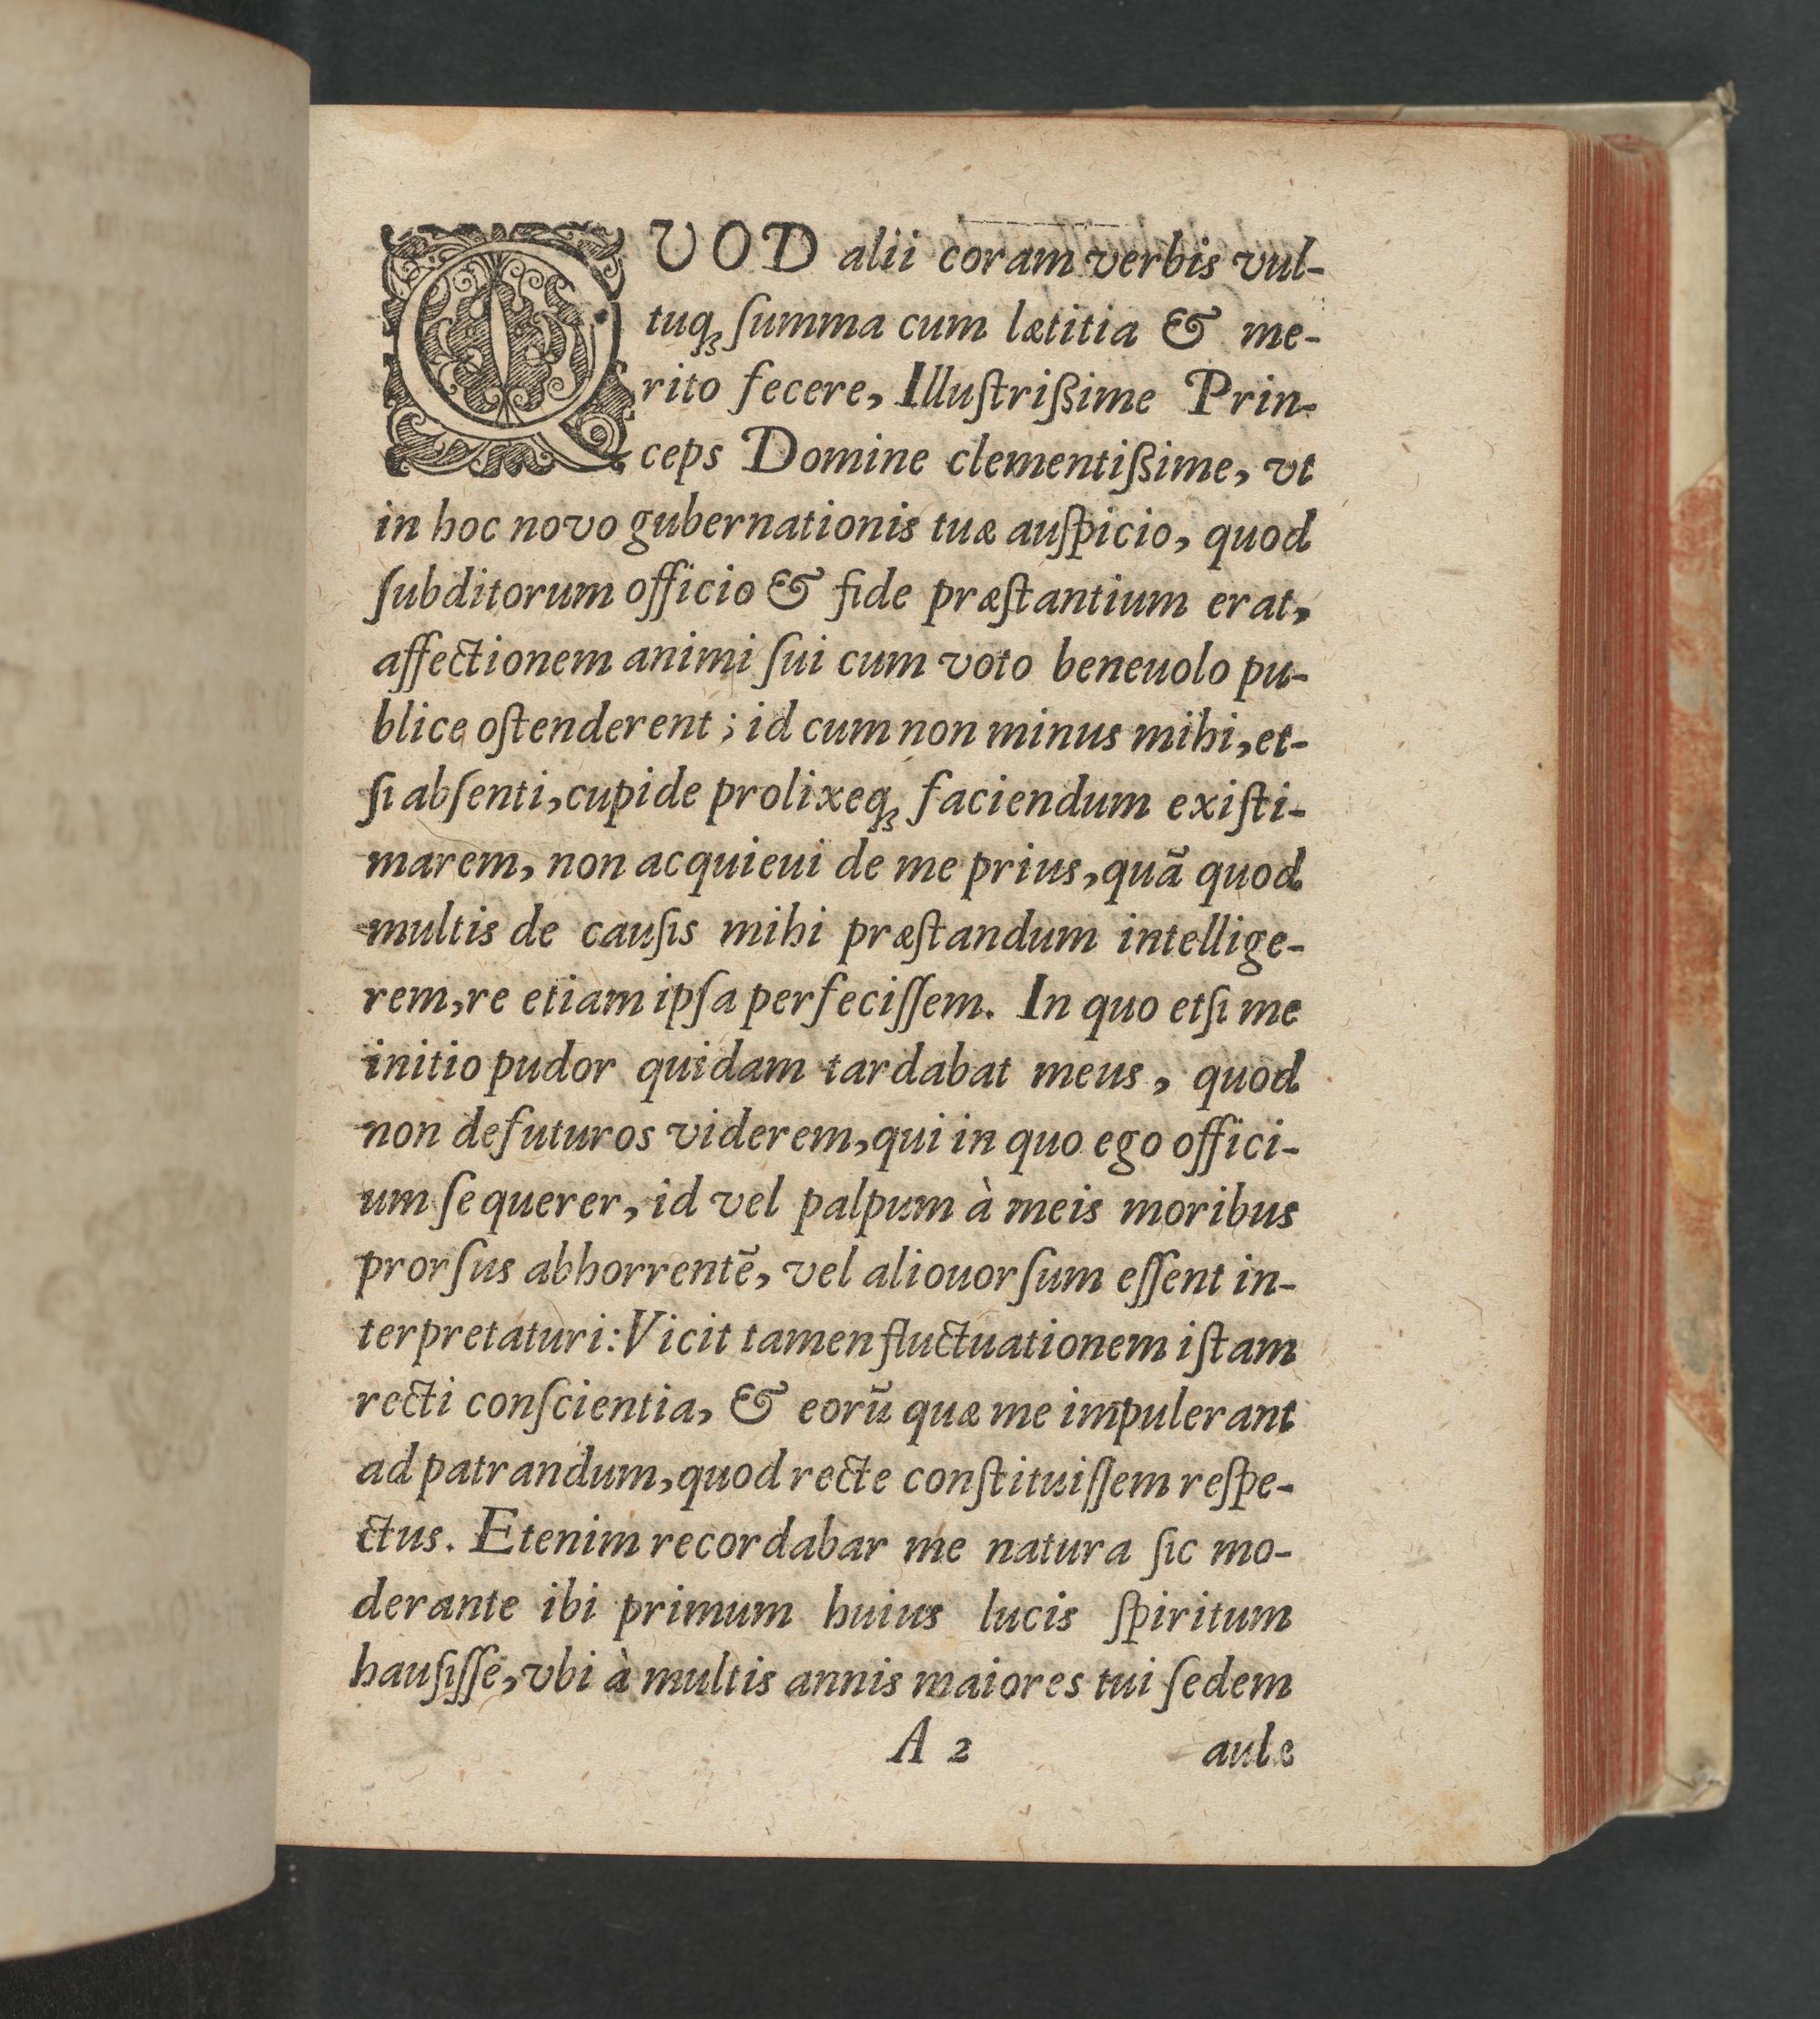 QVOD alii coram verbis vul-
tuq́ꝫ ſumma cum lætitia & me-
rito fecere, Illuſtriſsime Prin-
ceps Domine clementiſsime, vt
in hoc novo gubernationis tuæ auſpicio, quod
ſubditorum officio & fide præſtantium erat,
affectionem animi ſui cum voto beneuolo pu-
blice oſtenderent; id cum non minus mihi, et-
ſi abſenti, cupide prolixeqꝫ faciendum exiſti-
marem, non acquieui de me prius, quã quod
multis de cauſis mihi præſtandum intellige-
rem, re etiam ipſa perfeciſſem. In quo etſi me
initio pudor quidam tardabat meus, quod
non defuturos viderem, qui in quo ego offici-
um ſequerer, id vel palpum à meis moribus
prorſus abhorrentẽ, vel aliouorſum eſſent in-
terpretaturi: Vicit tamen fluctuationem iſtam
recti conſcientia, & eorũ quæ me impulerant
ad patrandum, quod recte conſtituiſſem reſpe-
ctus. Etenim recordabar me natura ſic mo-
derante ibi primum huius lucis ſpiritum
hauſiſſe, vbi à multis annis maiores tui ſedem
A 2 aulæ